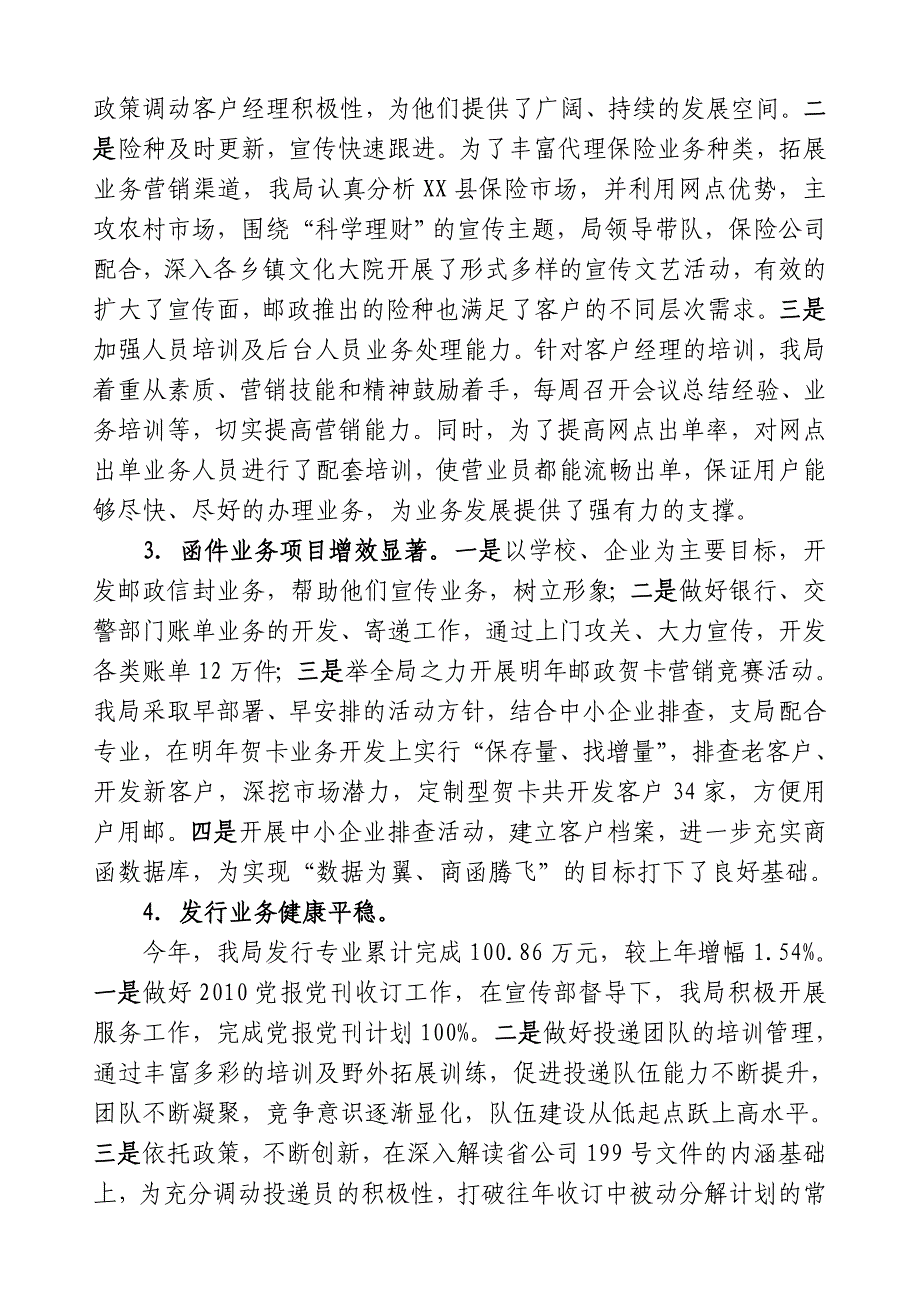 政策调动客户经理积极性，为他们提供了广阔、持续的发展空间。二
是险种及时更新，宣传快速跟进。为了丰富代理保险业务种类，拓展
业务营销渠道，我局认真分析 XX 县保险市场，并利用网点优势，主
攻农村市场，围绕“科学理财”的宣传主题，局领导带队，保险公司
配合，深入各乡镇文化大院开展了形式多样的宣传文艺活动，有效的
扩大了宣传面，邮政推出的险种也满足了客户的不同层次需求。三是
加强人员培训及后台人员业务处理能力。针对客户经理的培训，我局
着重从素质、营销技能和精神鼓励着手，每周召开会议总结经验、业
务培训等，切实提高营销能力。同时，为了提高网点出单率，对网点
出单业务人员进行了配套培训，使营业员都能流畅出单，保证用户能
够尽快、尽好的办理业务，为业务发展提供了强有力的支撑。
3. 函件业务项目增效显著。一是以学校、企业为主要目标，开
发邮政信封业务，帮助他们宣传业务，树立形象；二是做好银行、交
警部门账单业务的开发、寄递工作，通过上门攻关、大力宣传，开发
各类账单 12 万件；三是举全局之力开展明年邮政贺卡营销竞赛活动。
我局采取早部署、早安排的活动方针，结合中小企业排查，支局配合
专业，在明年贺卡业务开发上实行“保存量、找增量”，排查老客户、
开发新客户，深挖市场潜力，定制型贺卡共开发客户 34 家，方便用
户用邮。四是开展中小企业排查活动，建立客户档案，进一步充实商
函数据库，为实现“数据为翼、商函腾飞”的目标打下了良好基础。
4. 发行业务健康平稳。
今年，我局发行专业累计完成 100.86 万元，较上年增幅 1.54%。
一是做好 2010 党报党刊收订工作，在宣传部督导下，我局积极开展
服务工作，完成党报党刊计划 100%。二是做好投递团队的培训管理，
通过丰富多彩的培训及野外拓展训练，促进投递队伍能力不断提升，
团队不断凝聚，竞争意识逐渐显化，队伍建设从低起点跃上高水平。
三是依托政策，不断创新，在深入解读省公司 199 号文件的内涵基础
上，为充分调动投递员的积极性，打破往年收订中被动分解计划的常